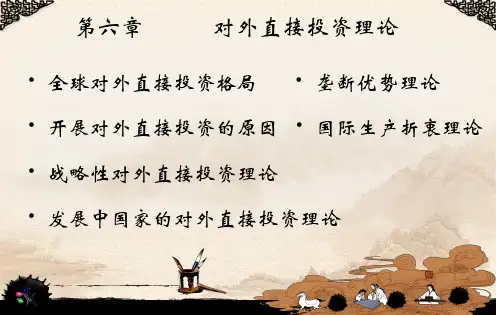 第六章 对外直接投资理论
• 全球对外直接投资格局 • 垄断优势理论
• 开展对外直接投资的原因 • 国际生产折衷理论
• 战略性对外直接投资理论
• 发展中国家的对外直接投资理论